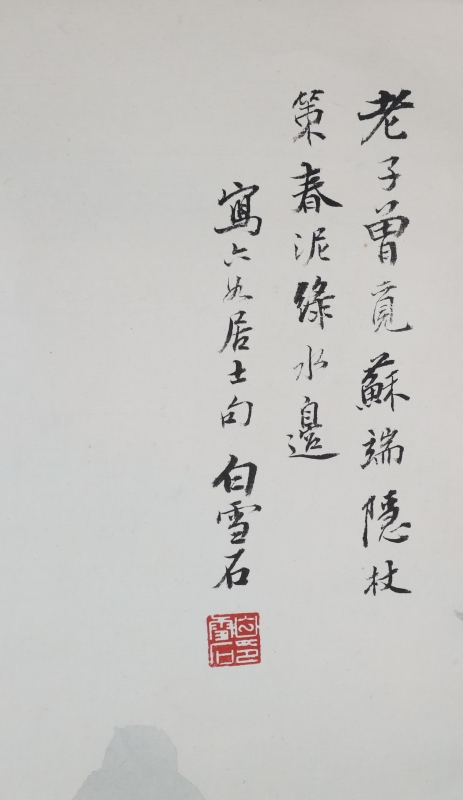 老子曾寛蘇端隱杖
策春泥綠水邊
寫六如居士句 白雪石
白雪石印